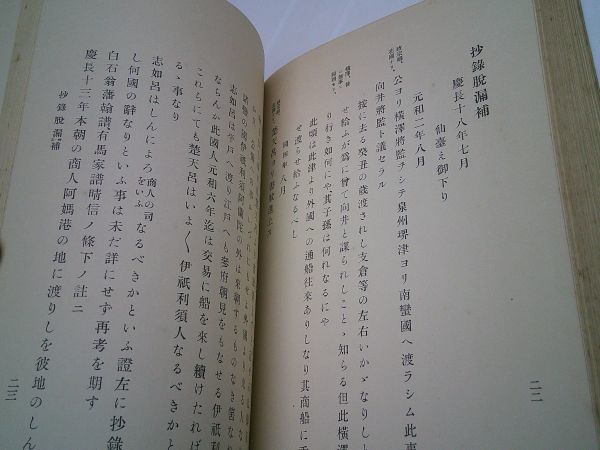 抄錄脫漏補
慶長十八年七月
仙臺え御下り
元和二年八月
公ヨリ橫澤將監ヲシテ泉州堺津ヨリ南蠻國へ渡ラシム此事
向井將監ト議セラル
按に去る癸丑の歲渡されし支倉等の左右いかゞなりし
せ給ふが爲に曾て向井と謀られしことゝ知らる但此橫澤
り行き如何にや其子孫は何れなるにや
此頃は此津より外國への通船往來ありしなり其商船に
せ渡らせ給ふなるべし
同四年八月
諸蠻の內伊祇利須阿蘭陀の外は來朝するものなき筈なれ
志如呂は平戶へ渡り江戶へも參府朝見をもなせる伊祇利
ならんか此國人元和六年迄は交易に船を來し續けたれば
これらにても楚天呂はいよ〱伊祇利須人なるべきかと
ゝ事なり
志如呂はしんによろ商人の司をいふなるべきかといふ證左に抄錄
し何國の辭なりといふ事は未だ詳にせず再考を期す
白石翁藩翰譜有馬家譜晴信ノ條下ノ註ニ
慶長十三年本朝の商人阿媽港の地に渡りしを彼地のしん
抄錄脫漏補
二二
二三